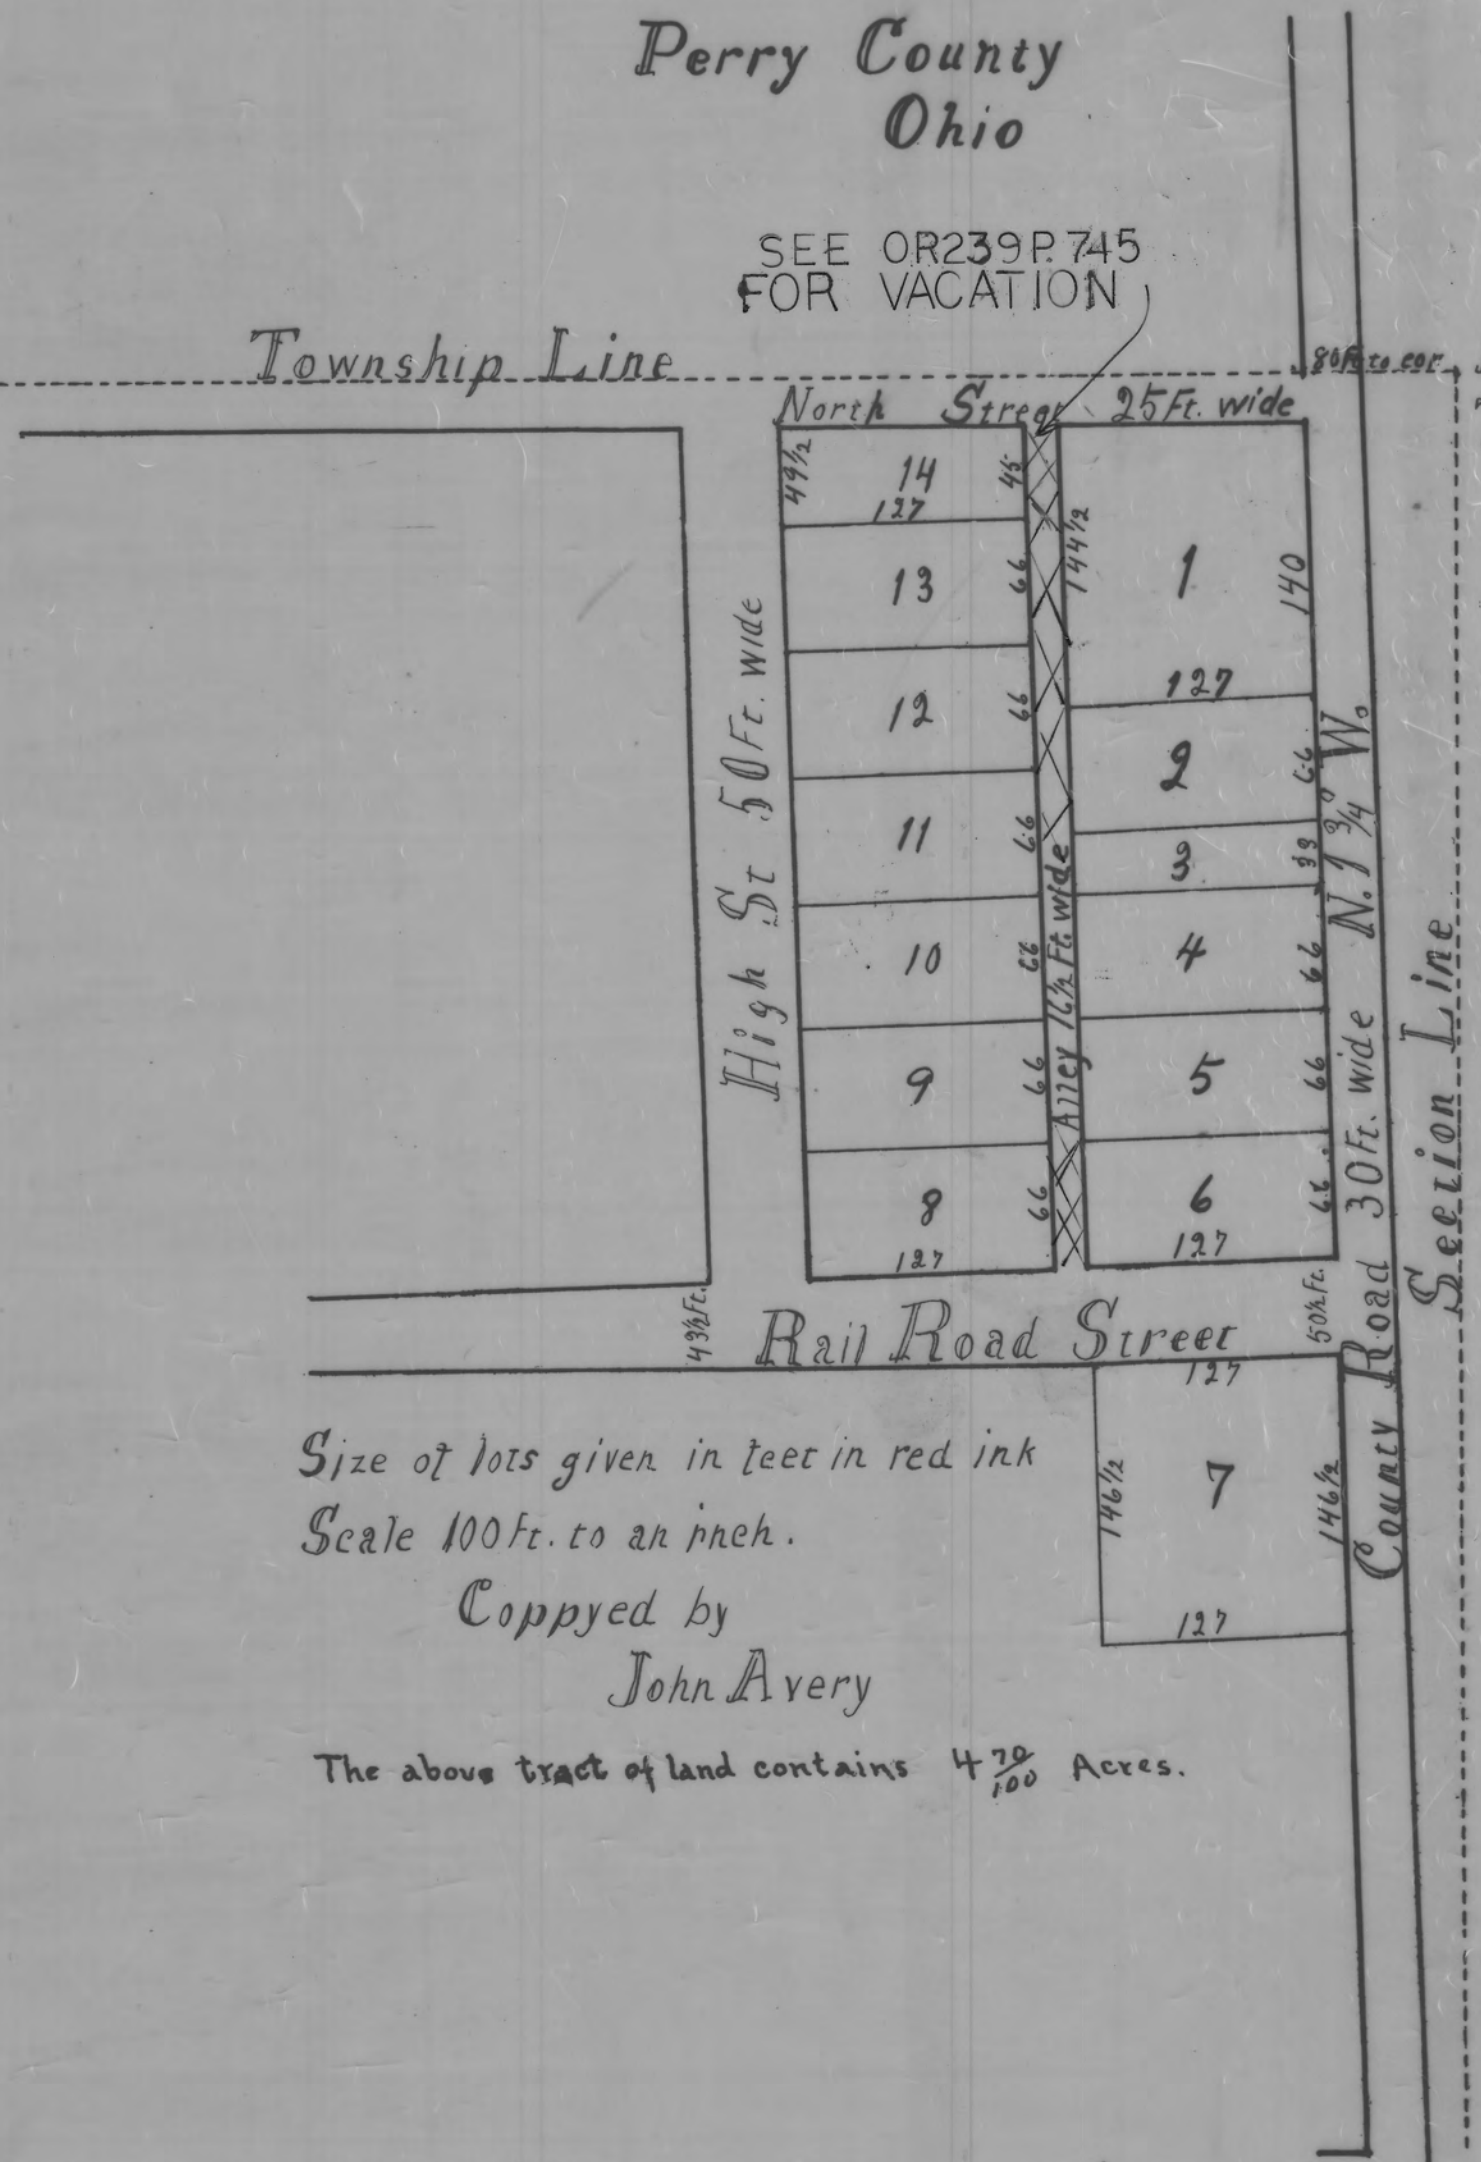 Perry County
Ohio
SEE OR239P.745
FOR VACATION
Township Line
80 Ft to cor
North Street 25Ft. wide
49½
14
45
127
144½
1
140
13
66
127
12
66
2
66
11
66
3
33
10
66
4
66
9
66
5
66
8
66
127
6
66
127
High St 50Ft. wide
Alley 16½ Ft. wide
County Road 30Ft. wide N. 1 3/4° W.
Section Line
43½Ft.
Rail Road Street
50½Ft.
127
146½
7
146½
127
Size of lots given in feet in red ink
Scale 100Ft. to an inch.
Coppyed by
John Avery
The above tract of land contains 4 70/100 Acres.